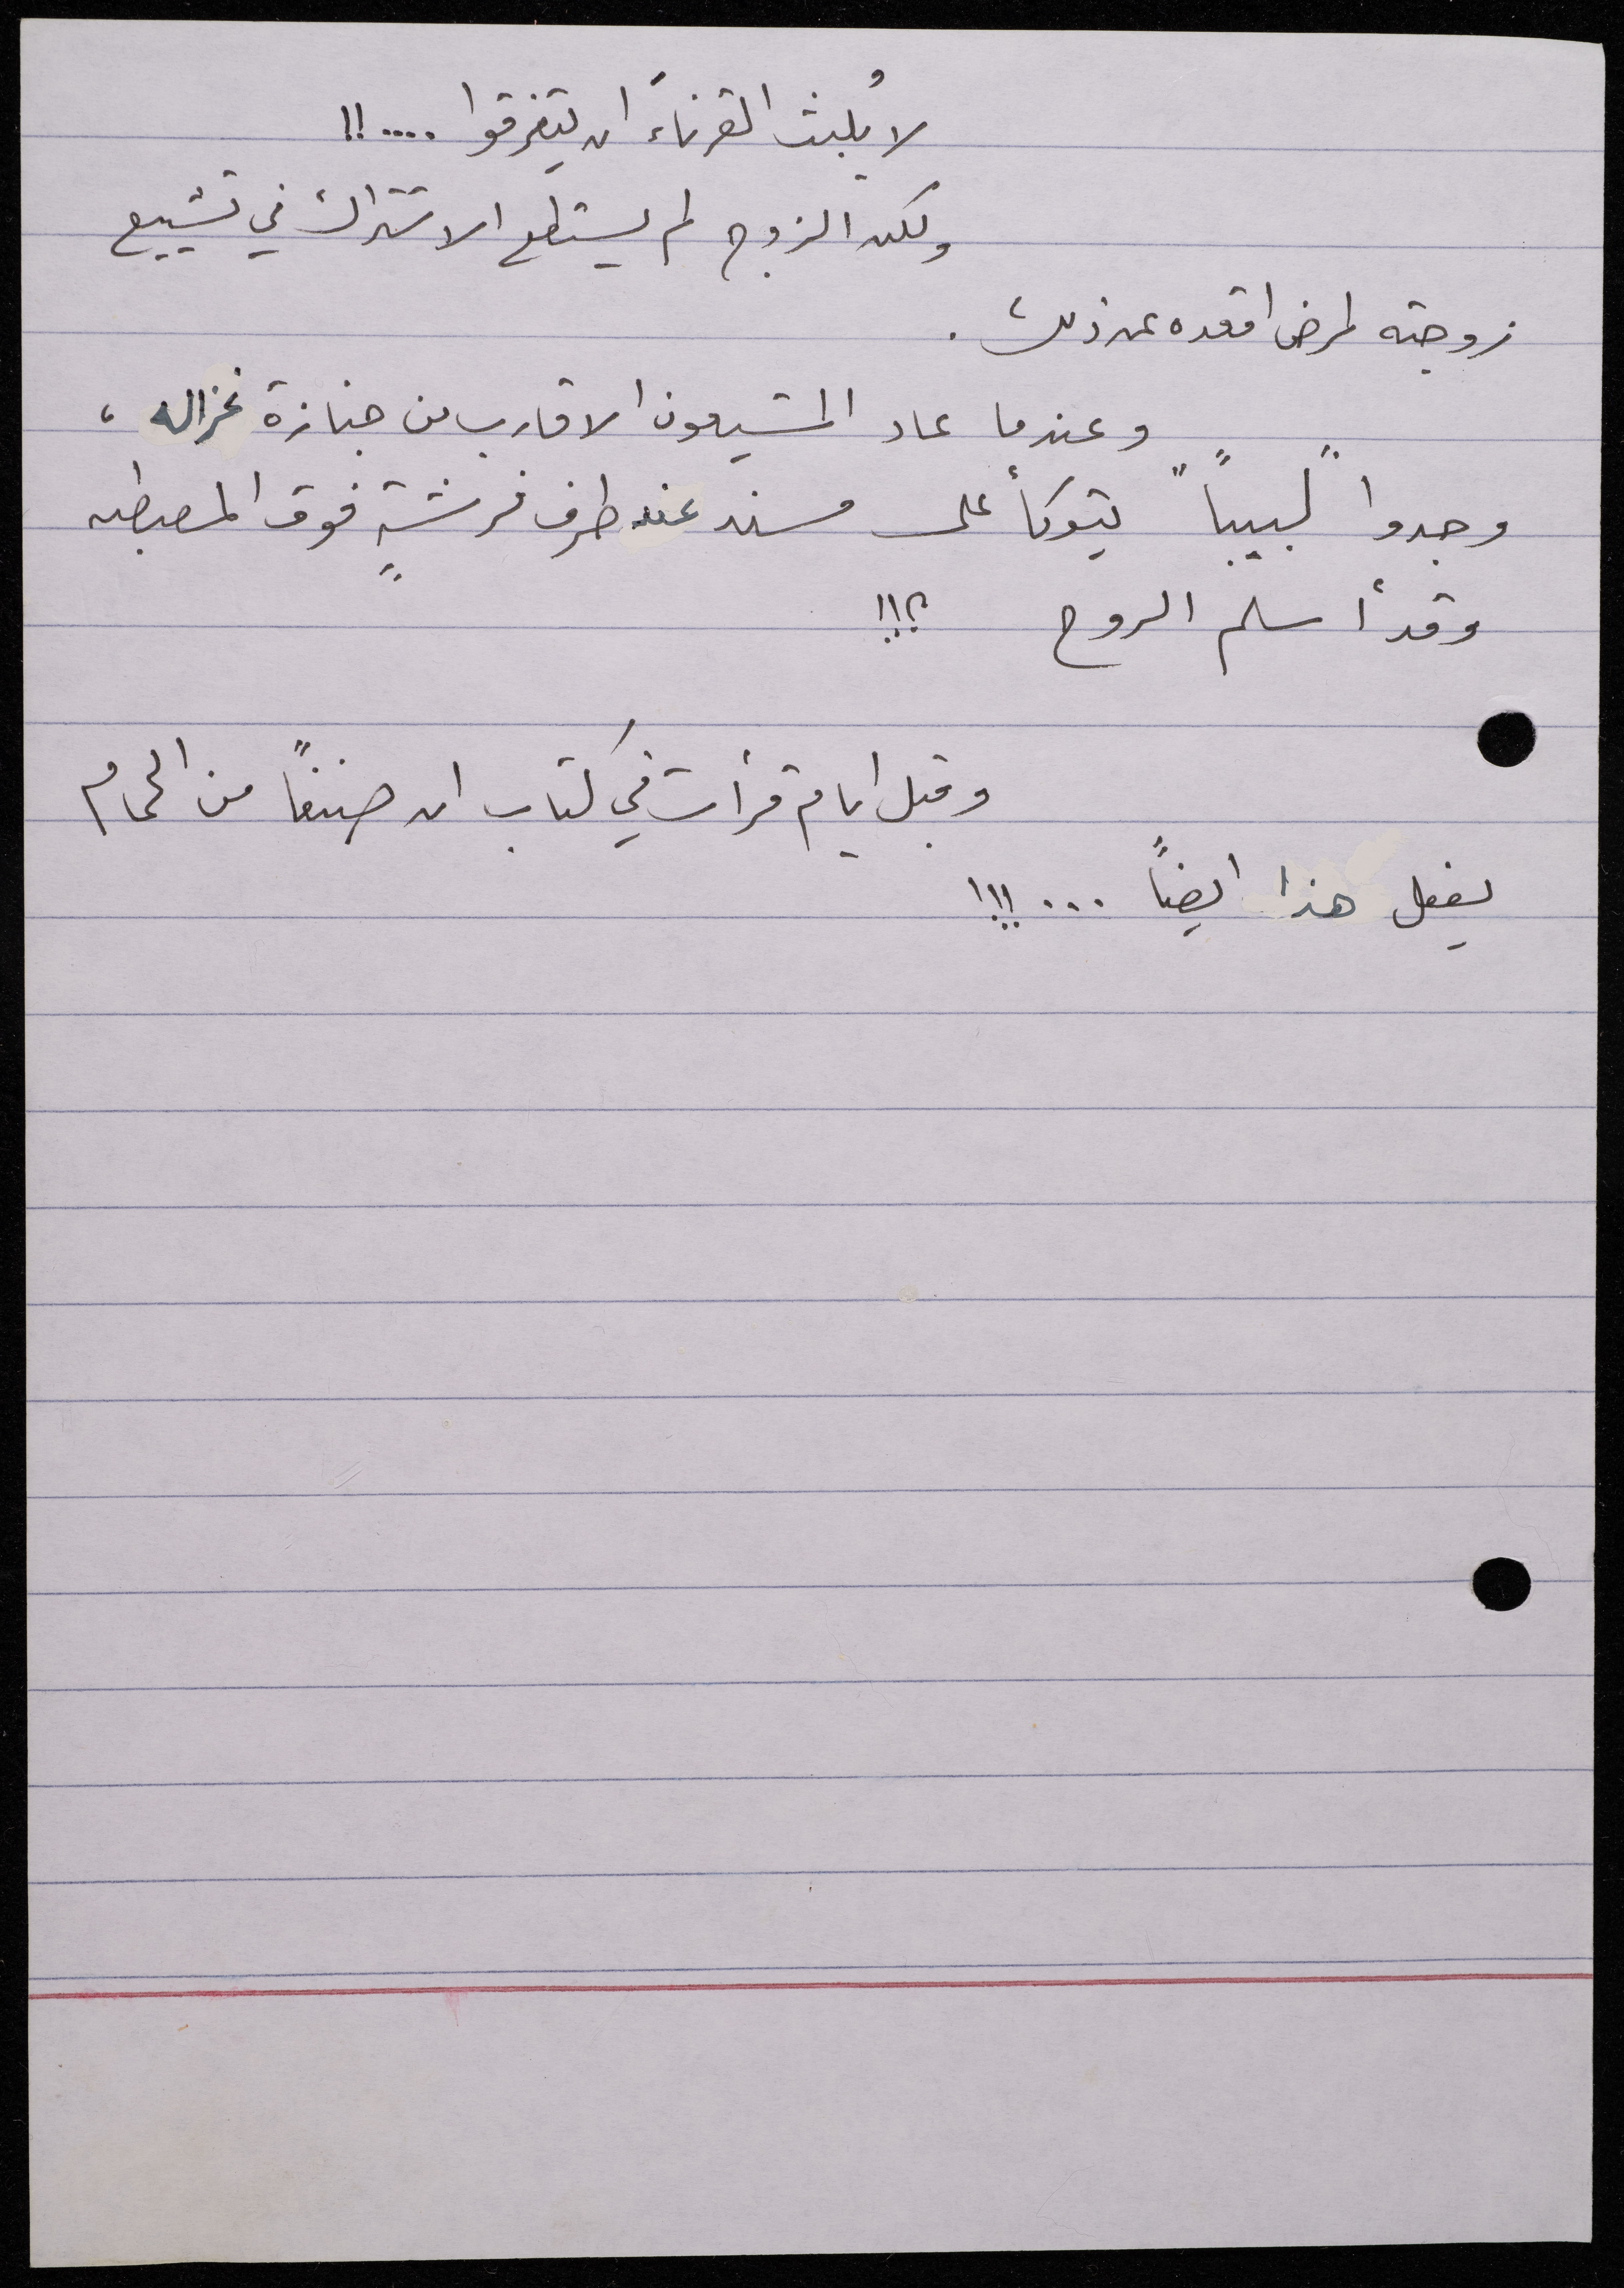 لا يُلبث القرناءَ ان يتفرقوا ....!!
ولكن الزوج لم يستطع الاشتراك في تشييع
زوجته لمرض اقعده عن ذلك .
وعندما عاد المشيعون الاقارب من جنازة غزاله ،
وجدوا "لبيباً" يتوكأ على مسند عند طرف فرشةٍ فوق المصطبه
وقد أسلم الروح ؟!!!
وقبل ايام قرأت في كتاب ان صنفاً من الحمام
يفعل هذا ايضاً ...!!!